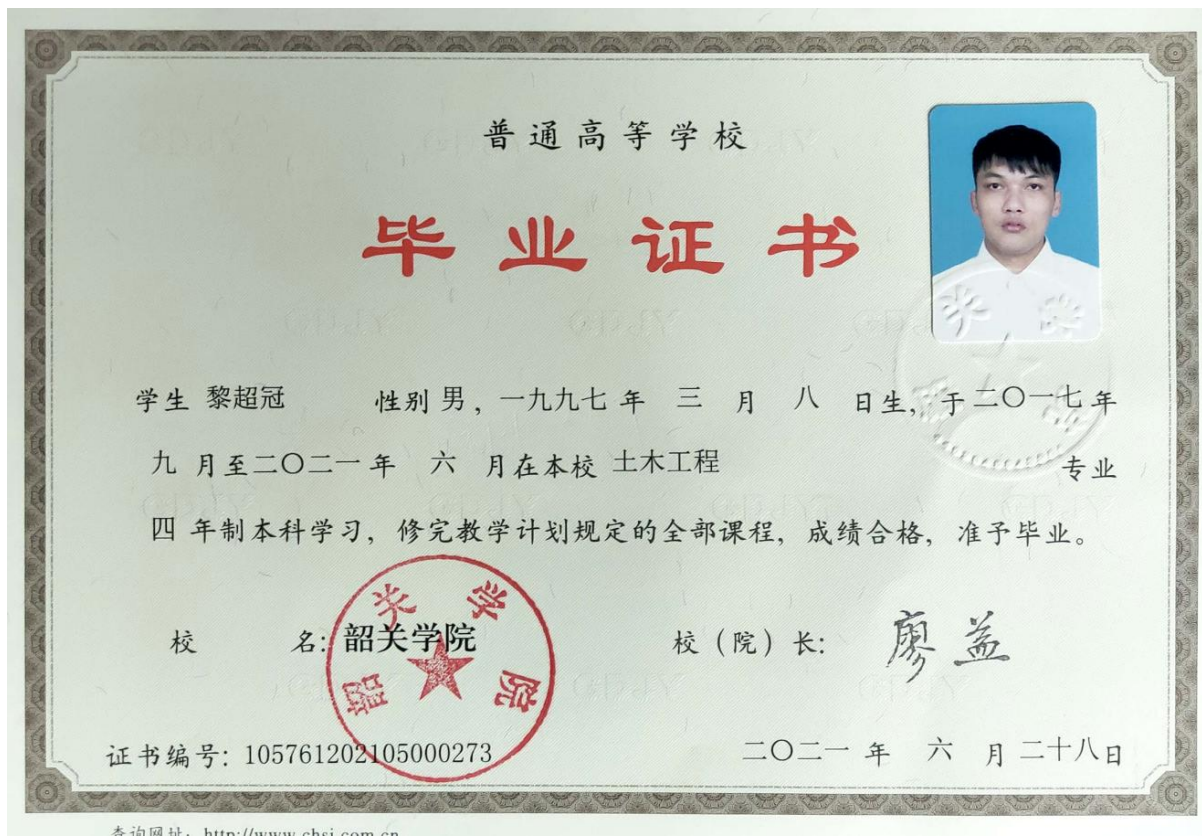 普通高等学校
毕业证书
学生 黎超冠 性别 男，一九九七 年 三 月 八 日生，于二〇一七年
九 月至二〇二一 年 六 月在本校 土木工程 专业
四 年制本科学习，修完教学计划规定的全部课程，成绩合格，准予毕业。
校 名：韶关学院 校（院）长：廖益
韶关学院
证书编号：105761202105000273 二〇二一 年 六 月二十八日
查询网址：http://www.chsi.com.cn